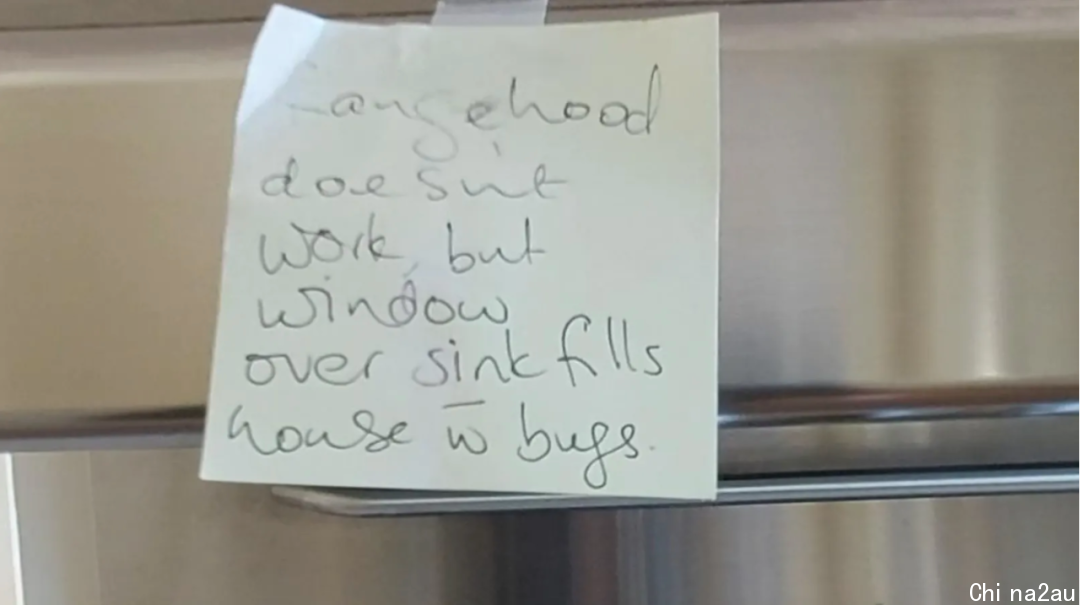 rangehood
doesn't
work, but
window
over sink fills
house w̅ bugs.
Chi na2au